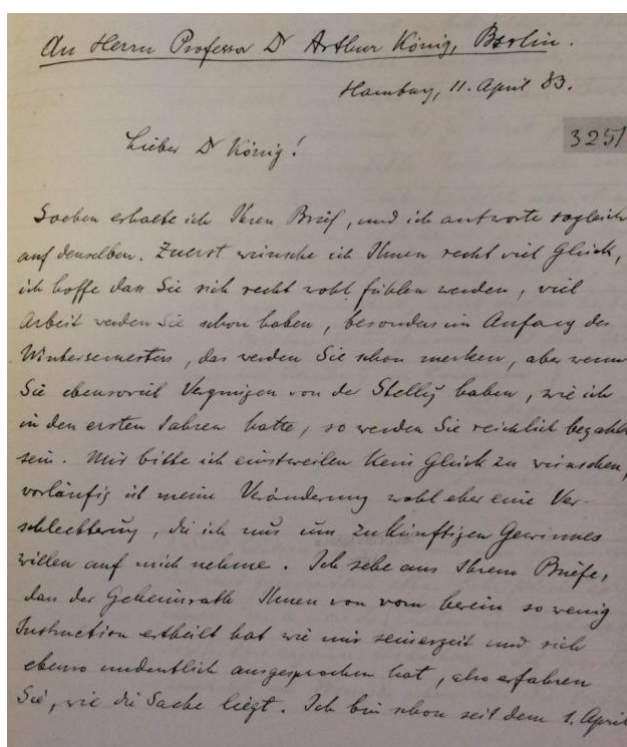 An Herrn Professor Dr Arthur König, Berlin.
Hamburg, 11. April 83.
3251
Lieber Dr König!
Soeben erhalte ich Ihren Brief, und ich antworte sogleich
auf denselben. Zuerst wünsche ich Ihnen recht viel Glück,
ich hoffe dan Sie sich recht wohl fühlen werden, viel
Arbeit werden Sie schon haben, besonders im Anfang des
Wintersemesters, das werden Sie schon merken, aber wenn
Sie ebensoviel Vergnügen von der Stellg haben, wie ich
in den ersten Jahren hatte, so werden Sie reichlich bezahlt
sein. Mir bitte ich einstweilen kein Glück zu wünschen,
vorläufig ist meine Veränderung wohl eher eine Ver-
schlechterung, die ich nur um zukünftigen Gewinnes
willen auf mich nehme. Ich sehe aus Ihrem Briefe,
dan der Geheimrath Ihnen von vorn herein so wenig
Instruction ertheilt hat wie mir seinerzeit und sich
ebenso undeutlich ausgesprochen hat, also erfahren
Sie, wie die Sache liegt. Ich bin schon seit dem 1. April